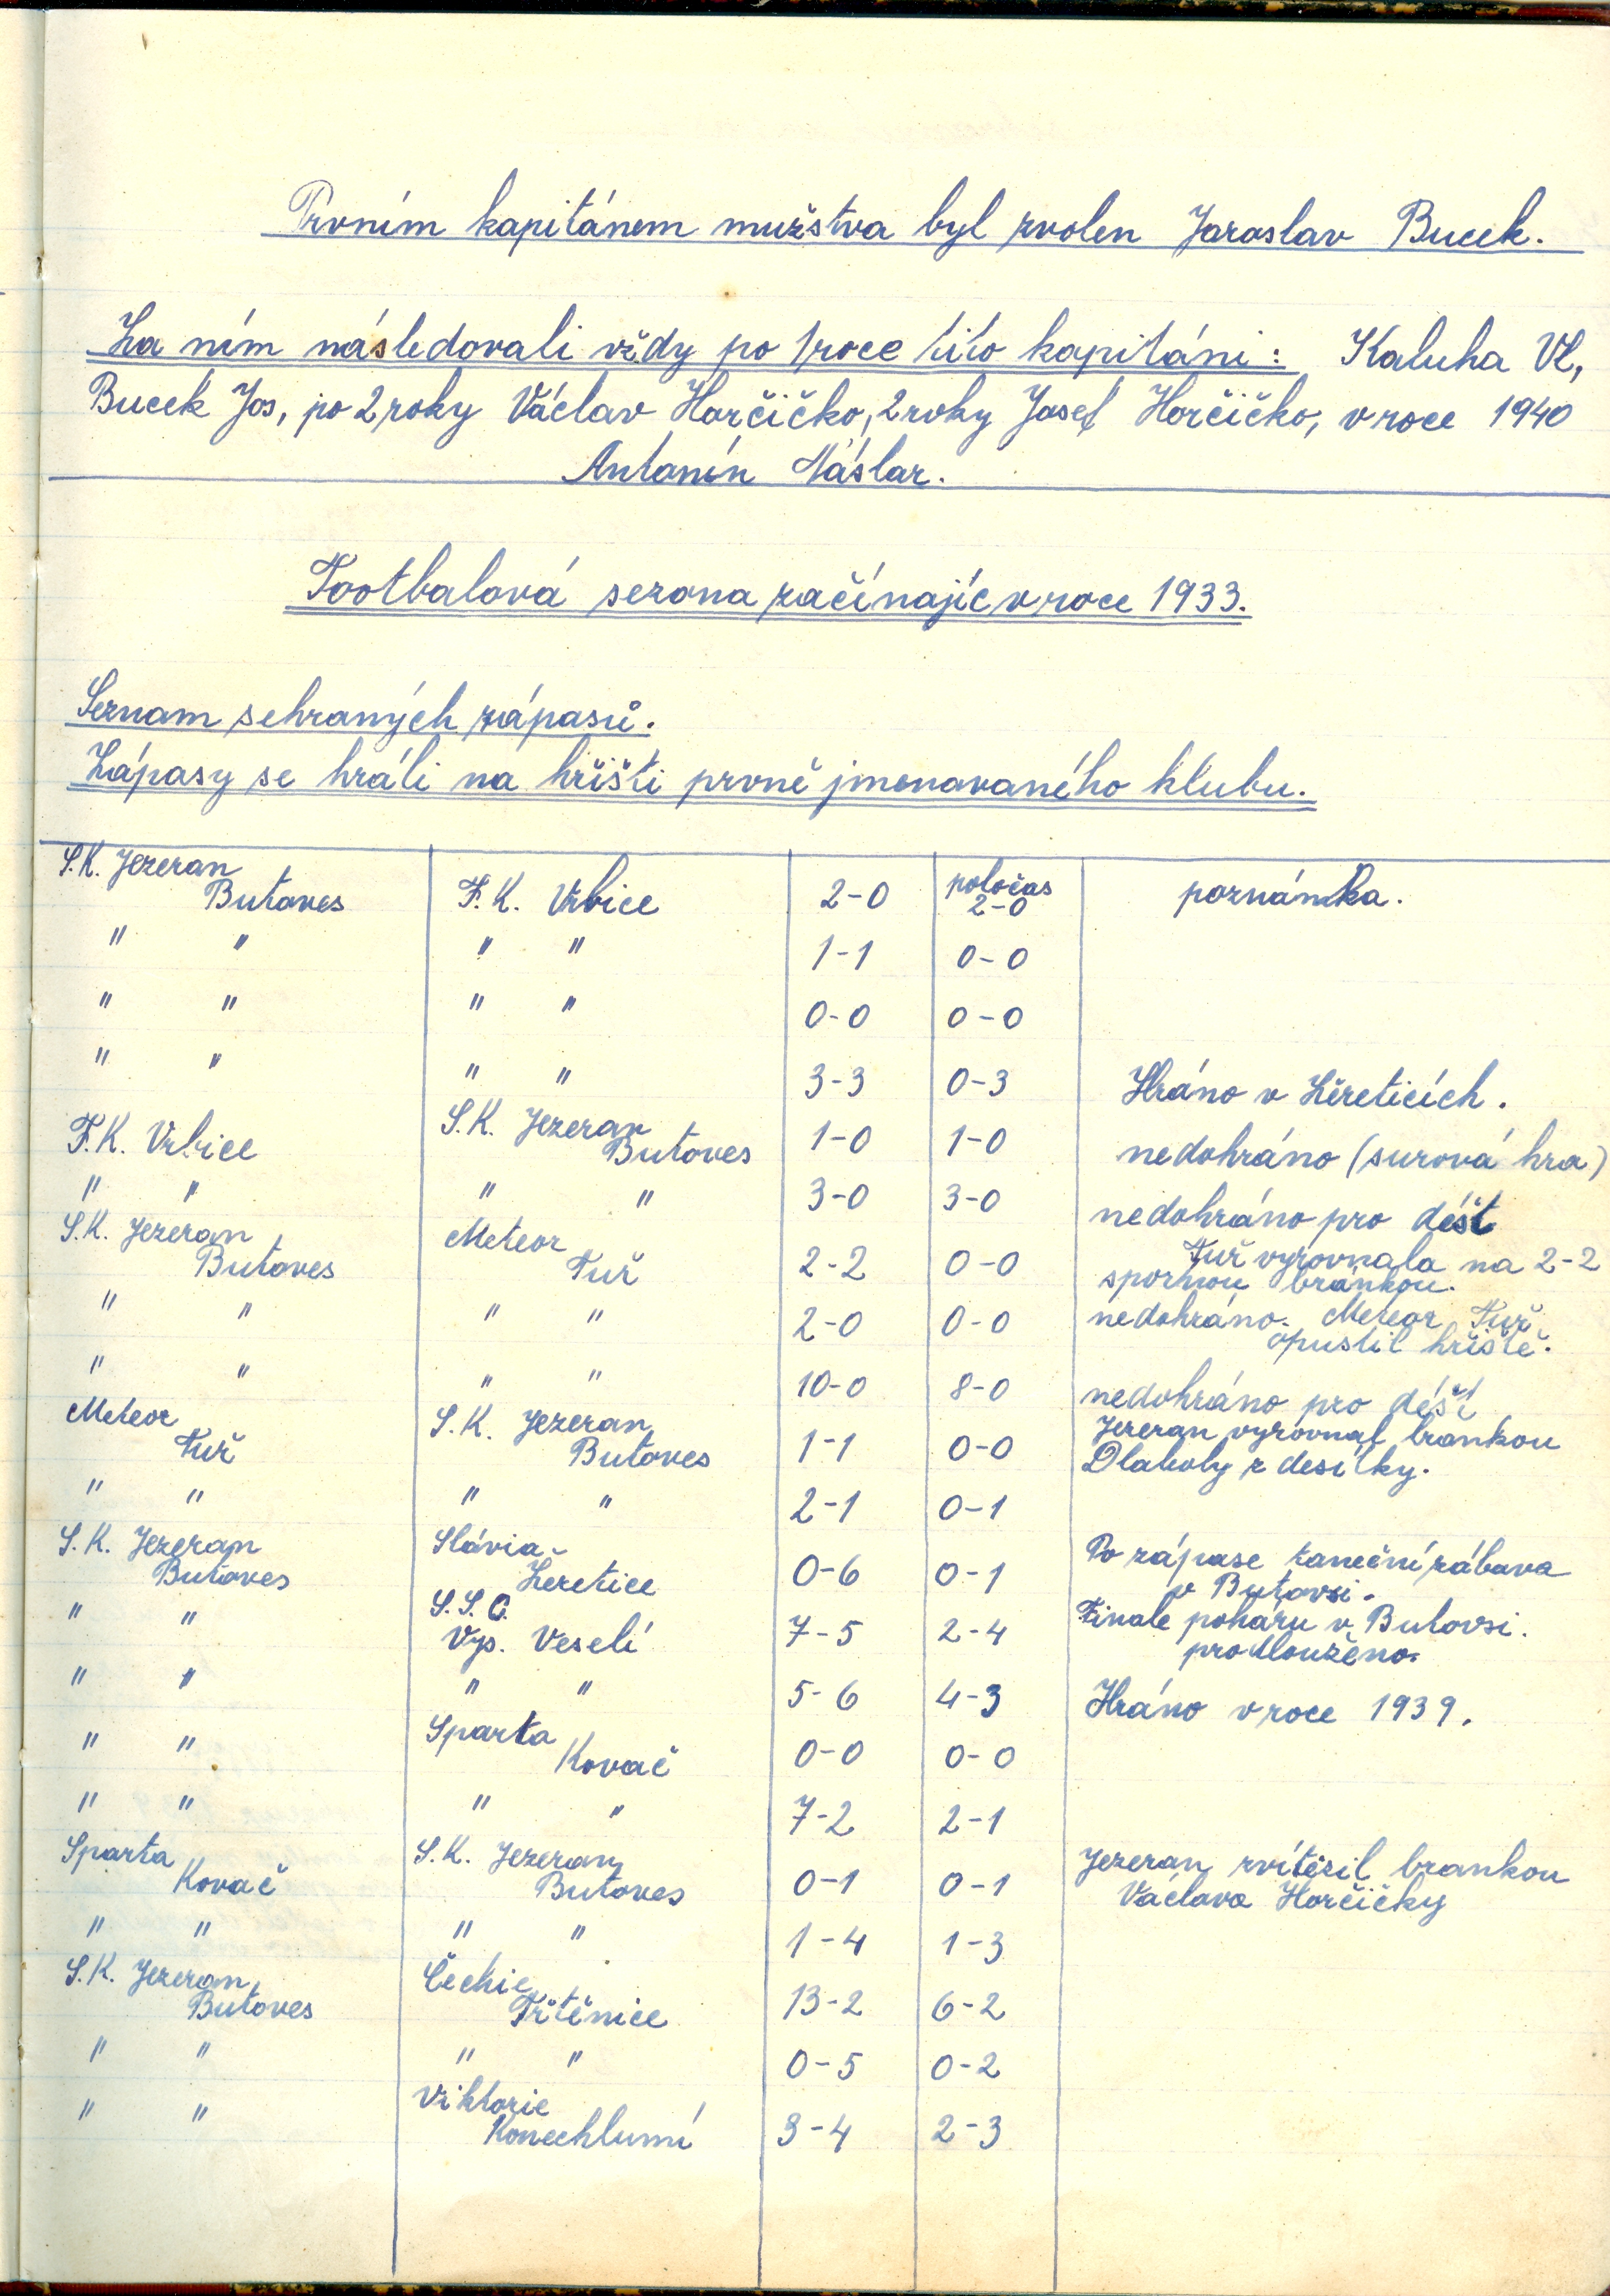 Prvním kapitánem mužstva byl zvolen Jaroslav Bucek.
Za ním následovali vždy po 1 roce tito kapitáni: Kaluha Vl,
Bucek Jos, po 2 roky Václav Horčičko, 2 roky Josef Horčičko, v roce 1940
Antonín Máslar.
Footbalová sezona začínajíc v roce 1933.
Seznam sehraných zápasů.
Zápasy se hráli na hřišti prvně jmenovaného klubu.
S.K. Jezeran Butoves F.K. Vrbice 2-0 poločas 2-0 poznámka.
" " " " 1-1 0-0
" " " " 0-0 0-0
" " " " 3-3 0-3 Hráno v Žěreticích.
F.K. Vrbice S.K. Jezeran Butoves 1-0 1-0 nedohráno (surová hra)
" " " " 3-0 3-0 nedohráno pro déšť
S.K. Jezeran Butoves Meteor Tuř 2-2 0-0 Tuř vyrovnala na 2-2 spornou bránkou.
" " " " 2-0 0-0 nedohráno. Meteor Tuř opustil hřiště.
" " " " 10-0 8-0 nedohráno pro déšť
Meteor Tuř S.K. Jezeran Butoves 1-1 0-0 Jezeran vyrovnal brankou Dlaboly z desítky.
" " " " 2-1 0-1
S.K. Jezeran Butoves Slávia Žeretice 0-6 0-1 Po zápase taneční zábava v Butovsi.
" " S.S.C. Vys. Veselí 7-5 2-4 Finale poháru v Butovsi. prodlouženo.
" " " " 5-6 4-3 Hráno v roce 1939.
" " Sparta Kovač 0-0 0-0
" " " " 7-2 2-1
Sparta Kovač S.K. Jezeran Butoves 0-1 0-1 Jezeran zvítězil brankou Václava Horčičky
" " " " 1-4 1-3
S.K. Jezeran Butoves Čechie Třtěnice 13-2 6-2
" " " " 0-5 0-2
" " Viktorie Konechlumí 3-4 2-3